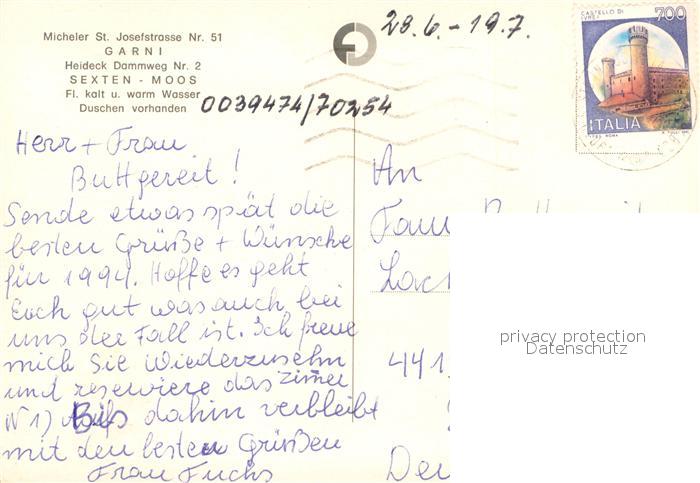 Micheler St. Josefstrasse Nr. 51
GARNI
Heideck Dammweg Nr. 2
SEXTEN - MOOS
Fl. kalt u. warm Wasser
Duschen vorhanden
28.6. - 19.7.
0039474/70254
CASTELLO DI
IVREA
700
ITALIA
Herr + Frau
Buttgereit!
Sende etwas spät die
besten Grüße + Wünsche
für 1994. Hoffe es geht
Euch gut was auch bei
uns der Fall ist. Ich freue
mich Sie wiederzusehn
und reserviere das Zimmer
N 1) Bis dahin verbleibt
mit den besten Grüßen
Frau Fuchs
An
Fam
441
privacy protection
Datenschutz